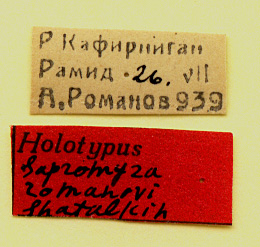 Р Кафирниган
Рамид • 26. VII
А. Романов 939
Holotypus
Sapromyza
romanovi
Shatalkin